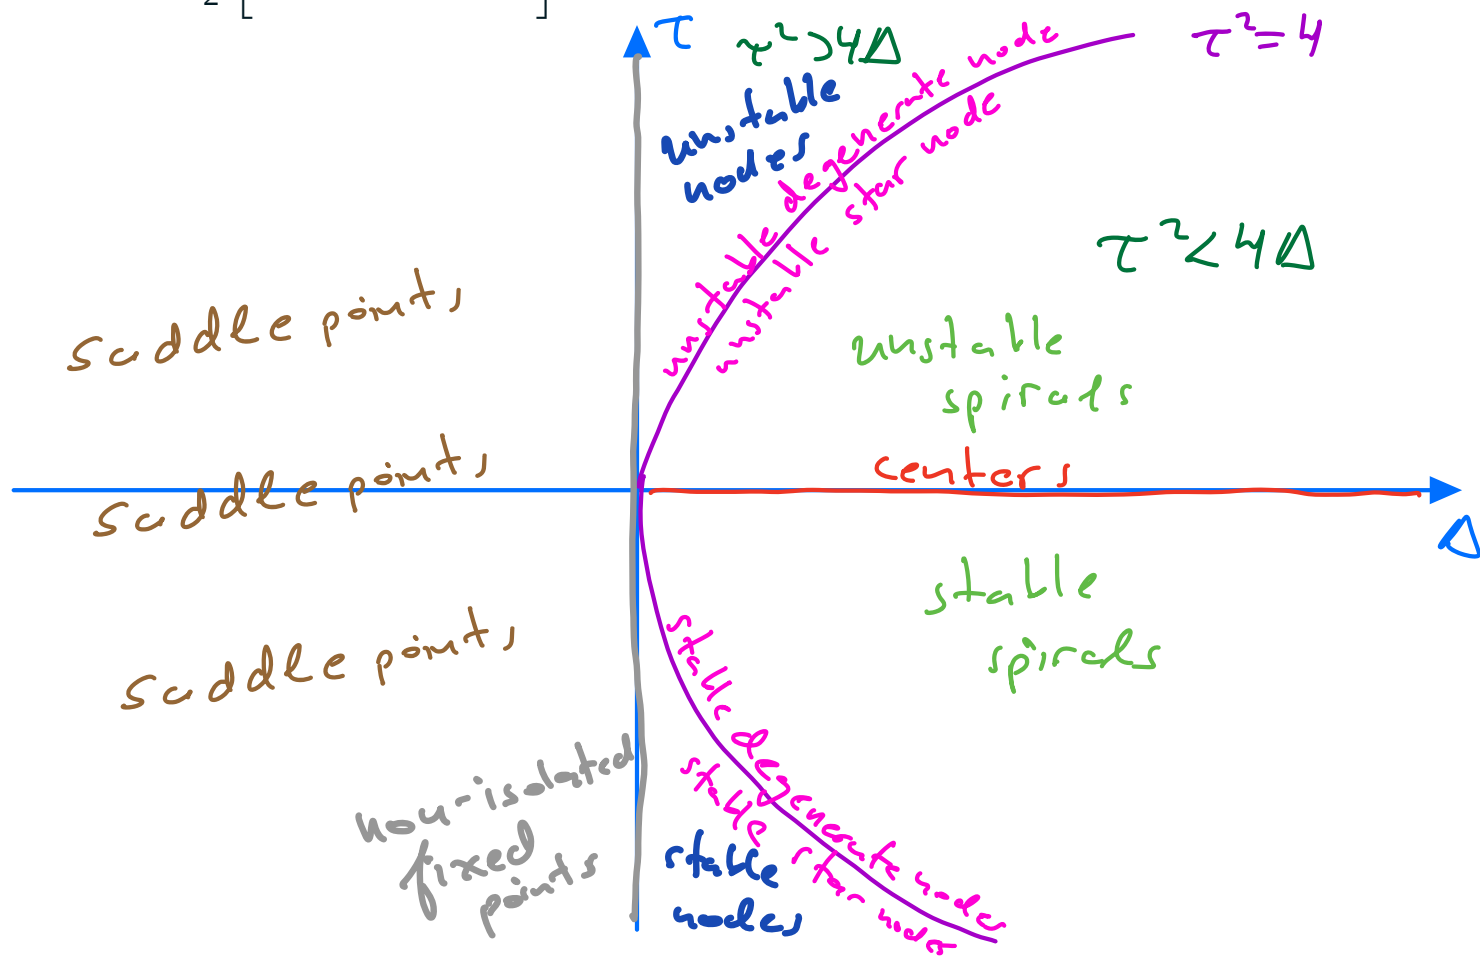 2 [ ]
τ
τ² > 4Δ
τ² = 4
unstable
nodes
unstable degenerate node
unstable star node
τ² < 4Δ
saddle points
unstable
spirals
centers
saddle points
Δ
stable
spirals
saddle points
stable degenerate nodes
stable star nodes
non-isolated
fixed
points
stable
nodes